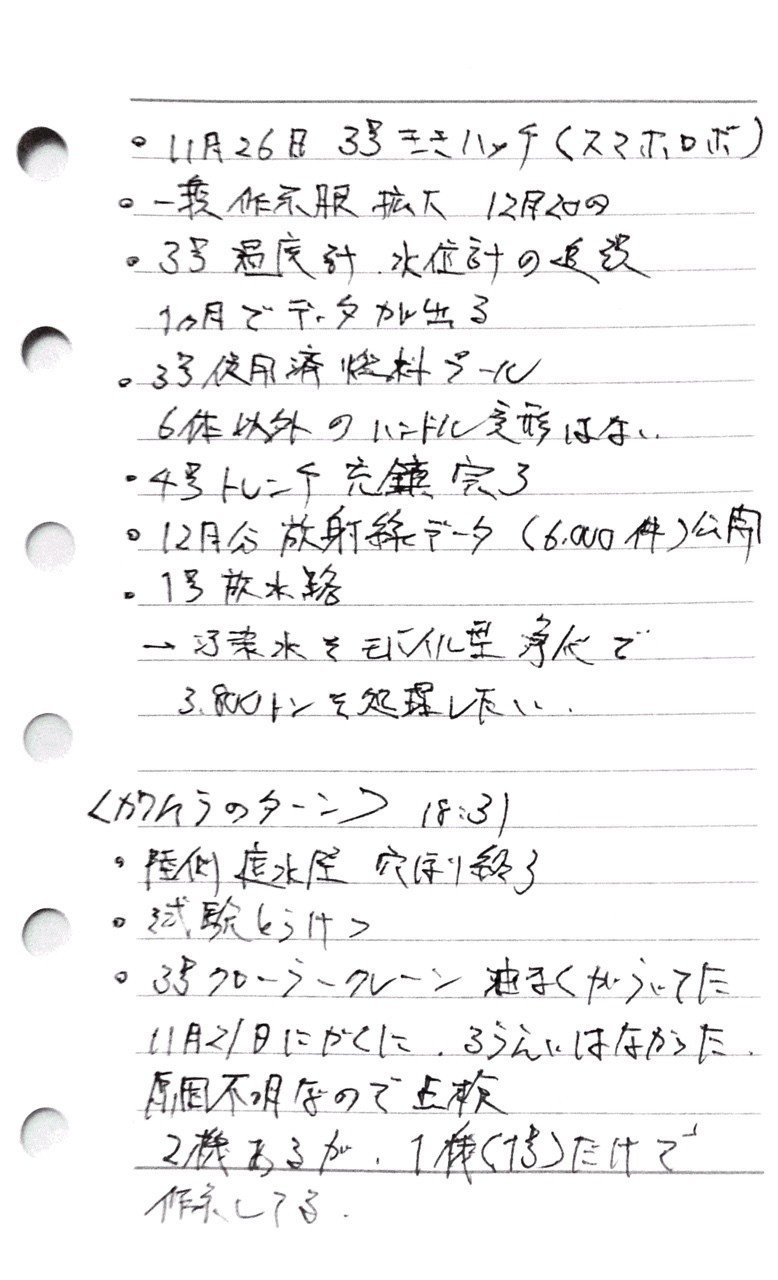 ・11月26日 3号ききハッチ(スマホロボ)
・一般作業服 拡大 12月20日
・3号 温度計、水位計の追設
1ヵ月でデータが出る
・3号使用済燃料プール
6体以外のハンドル変形はない
・4号トレンチ 充鎮完了
・12月分 放射線データ (6.000件)公開
・1号放水路
→汚染水をモバイル型 浄化で
3.800トンを処理したい.
18:31
・陸側遮水壁 穴ほり終了
・試験とうけつ
・3号クローラークレーン 油まくがういてた
11月21日にかくに、ろうえいはなかった.
原因不明なので点検
2機あるが、1機(1号)だけで
作業してる.